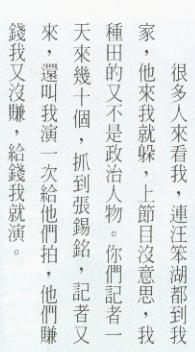 很多人來看我，連汪笨湖都到我
家，他來我就躲，上節目沒意思，我
種田的又不是政治人物。你們記者一
天來幾十個，抓到張錫銘，記者又
來，還叫我演一次給他們拍，他們賺
錢我又沒賺，給錢我就演。